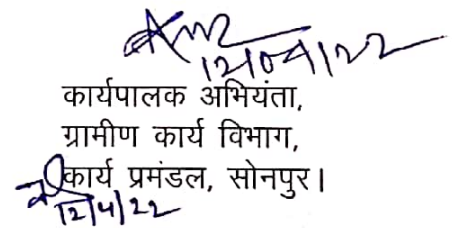 12/04/22
कार्यपालक अभियंता,
ग्रामीण कार्य विभाग,
कार्य प्रमंडल, सोनपुर।
12/4/22